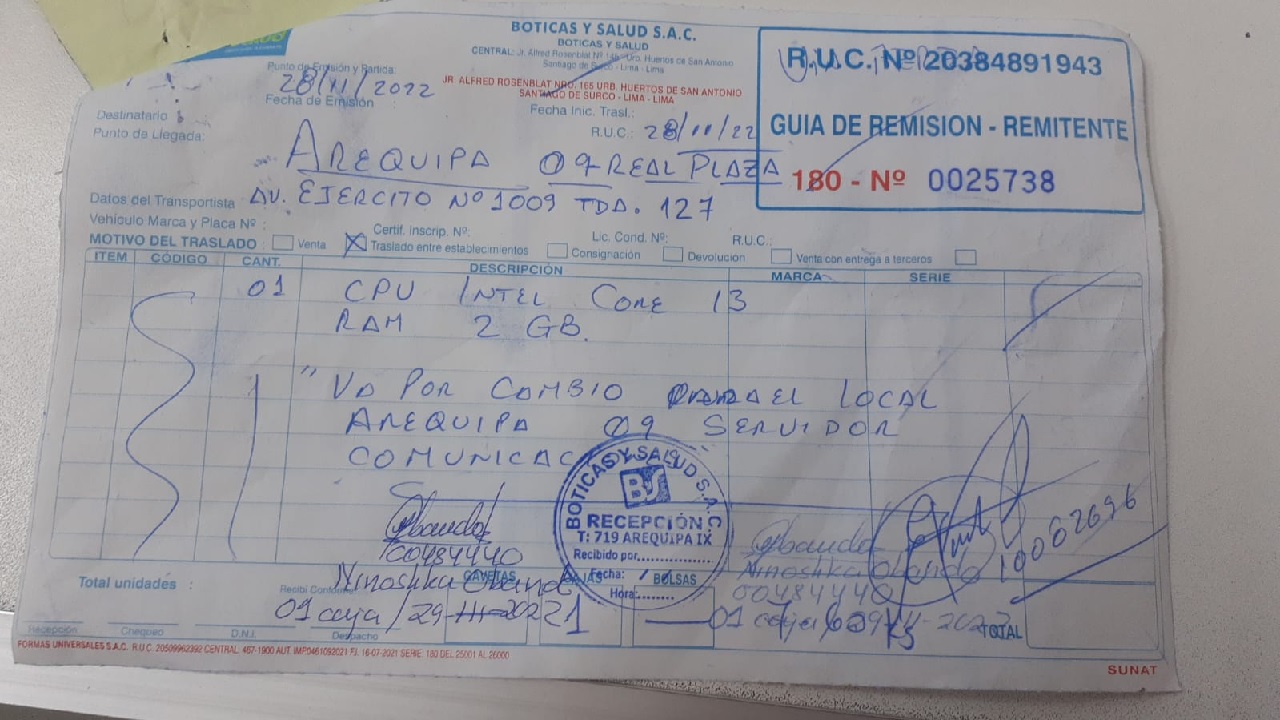 BOTICAS Y SALUD S.A.C.
BOTICAS Y SALUD
CENTRAL: Jr. Alfred Rosenblat Nº 165 Urb. Huertos de San Antonio
Santiago de Surco - Lima - Lima
JR. ALFRED ROSENBLAT NRO. 165 URB. HUERTOS DE SAN ANTONIO
SANTIAGO DE SURCO - LIMA - LIMA
R.U.C. Nº 20384891943
GUIA DE REMISION - REMITENTE
180 - Nº 0025738
Punto de Emisión y Partida:
28/11/2022
Fecha de Emisión
Fecha Inic. Trasl.:
Destinatario :
R.U.C.: 28/11/22
Punto de Llegada:
AREQUIPA 09 REAL PLAZA
Datos del Transportista AV. EJERCITO Nº 1009 TDA. 127
Vehículo Marca y Placa Nº : Certif. Inscrip. Nº: Lic. Cond. Nº: R.U.C.:
MOTIVO DEL TRASLADO : Venta X Traslado entre establecimientos Consignación Devolucion Venta con entrega a terceros
ITEM CÓDIGO CANT. DESCRIPCIÓN MARCA SERIE
01 CPU INTEL CORE I3
RAM 2 GB.
" VA POR CAMBIO PARA EL LOCAL
AREQUIPA 09 SERVIDOR
COMUNICAC
BOTICAS Y SALUD S.A.C
BS
RECEPCIÓN
T: 719 AREQUIPA IX
Recibido por
Fecha:
Hora:
Obando
00484440
Ninoshka Obando
01 caja / 29-11-2022
Obando
Ninoshka Obando
00484440
01 caja
10062696
Total unidades :
Recibí Conforme
GAVETAS CAJAS BOLSAS
1
TOTAL
Recepción Chequeo D.N.I. Despacho
FORMAS UNIVERSALES S.A.C. R.U.C. 20509962392 CENTRAL: 467-1900 AUT. IMP.0461092021 F.I. 16-07-2021 SERIE: 180 DEL 25001 AL 26000
SUNAT